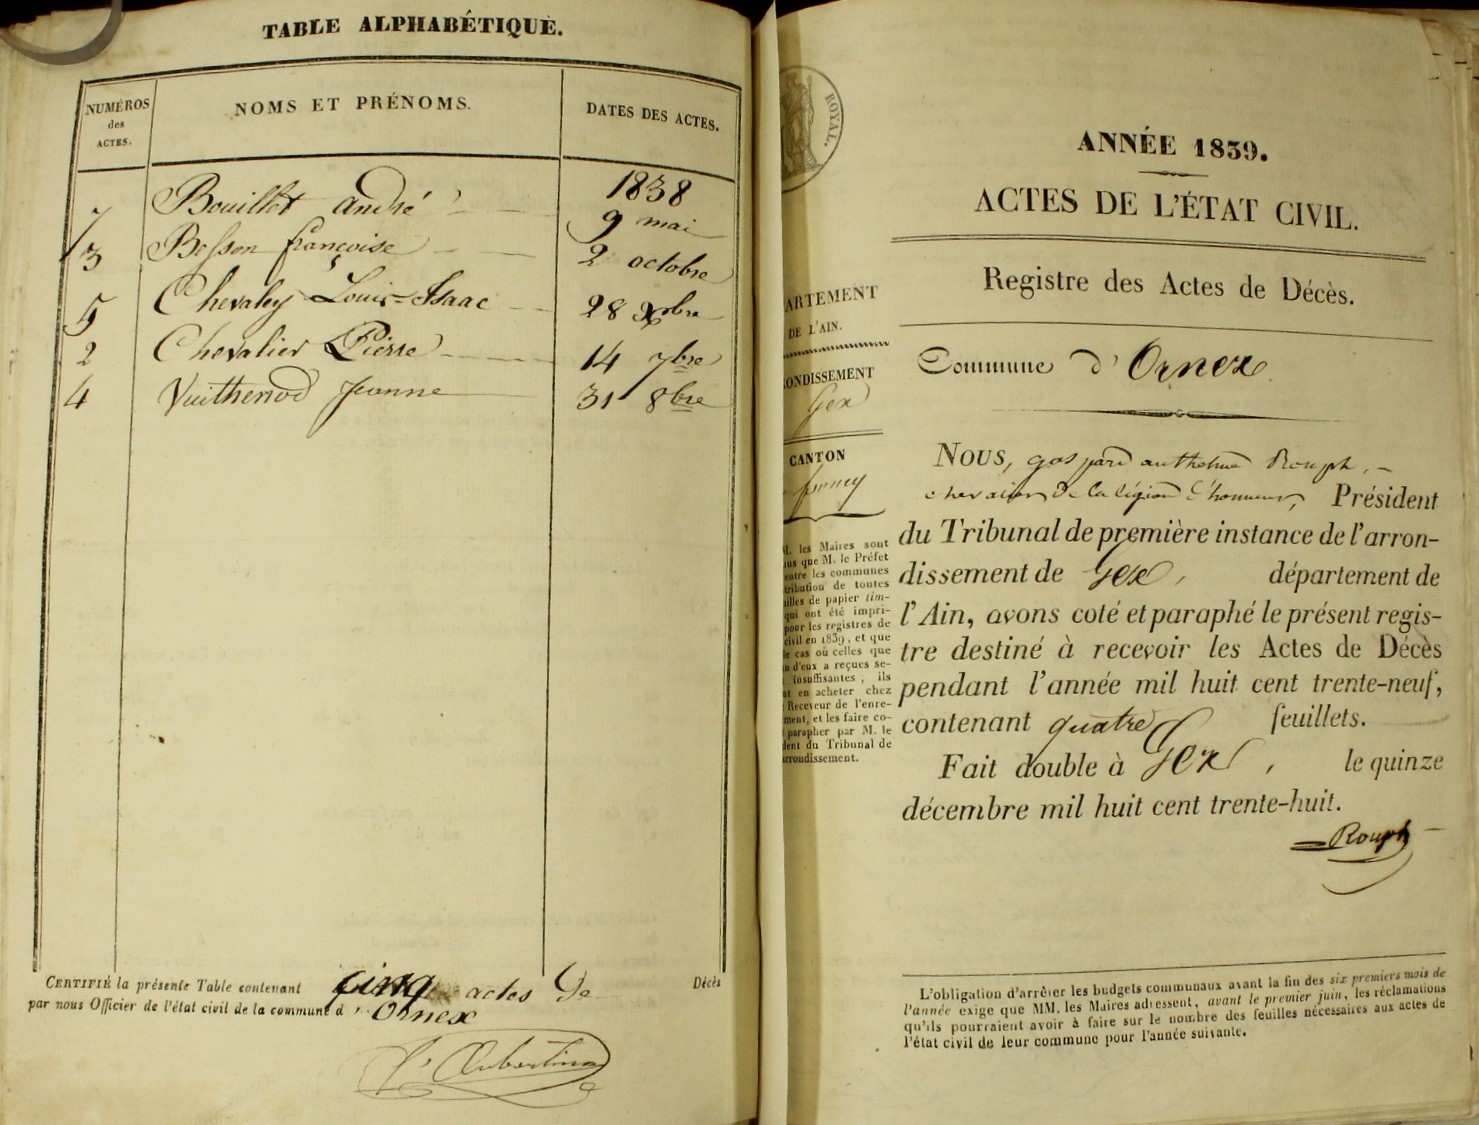 TABLE ALPHABÉTIQUE.
NUMÉROS
des
ACTES.
NOMS ET PRÉNOMS.
DATES DES ACTES.
1838
Bouillet andré 9 mai
3 Besson françoise 2 octobre
5 Chevaley Louis-Isaac 28 Xbre
2 Chevalier Pierre 14 7bre
4 Vuithenod Jeanne 31 8bre
CERTIFIÉ la présente Table contenant cinq actes De Décès
par nous Officier de l'état civil de la commune d' Ornex
ROYAL.
ANNÉE 1839.
ACTES DE L'ÉTAT CIVIL.
Registre des Actes de Décès.
ARTEMENT
DE L'AIN.
ONDISSEMENT
Gex
CANTON
Commune d'Ornex
NOUS, gaspard anthelme Rouph,
chevalier De la légion d'honneur, Président
du Tribunal de première instance de l'arron-
dissement de Gex, département de
l'Ain, avons coté et paraphé le présent regis-
tre destiné à recevoir les Actes de Décès
pendant l'année mil huit cent trente-neuf,
contenant quatre feuillets.
Fait double à Gex, le quinze
décembre mil huit cent trente-huit.
Rouph
M. les Maires sont
que M. le Préfet
entre les communes
tribution de toutes
uilles de papier tim-
qui ont été impri-
pour les registres de
civil en 1839, et que
le cas où celles que
d'eux a reçues se-
insuffisantes, ils
en acheter chez
Receveur de l'enre-
ment, et les faire co-
parapher par M. le
dent du Tribunal de
arrondissement.
L'obligation d'arrêter les budgets communaux avant la fin des six premiers mois de
l'année exige que MM. les Maires adressent, avant le premier juin, les réclamations
qu'ils pourraient avoir à faire sur le nombre des feuilles nécessaires aux actes de
l'état civil de leur commune pour l'année suivante.